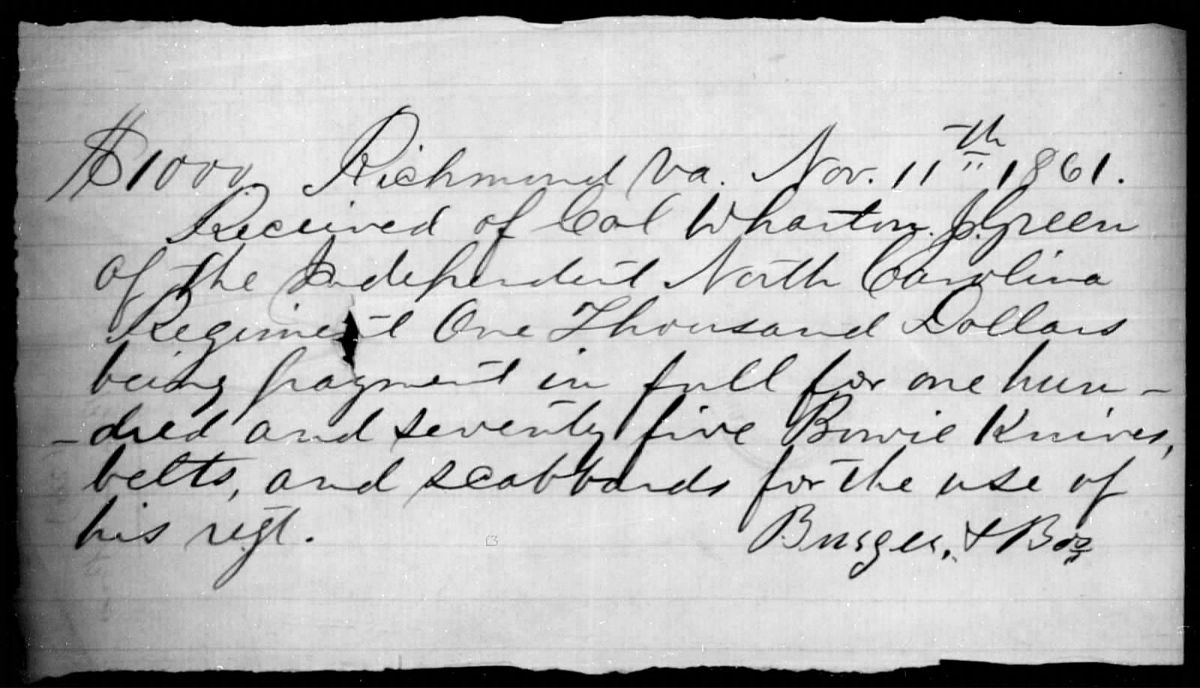 $1000, Richmond Va. Nov. 11th 1861.
Received of Col Wharton. J. Green
of the Independent North Carolina
Regiment One Thousand Dollars
being payment in full for one hun-
-dred and seventy five Bowie Knives,
belts, and scabbards for the use of
his regt.
Burger, & Bro